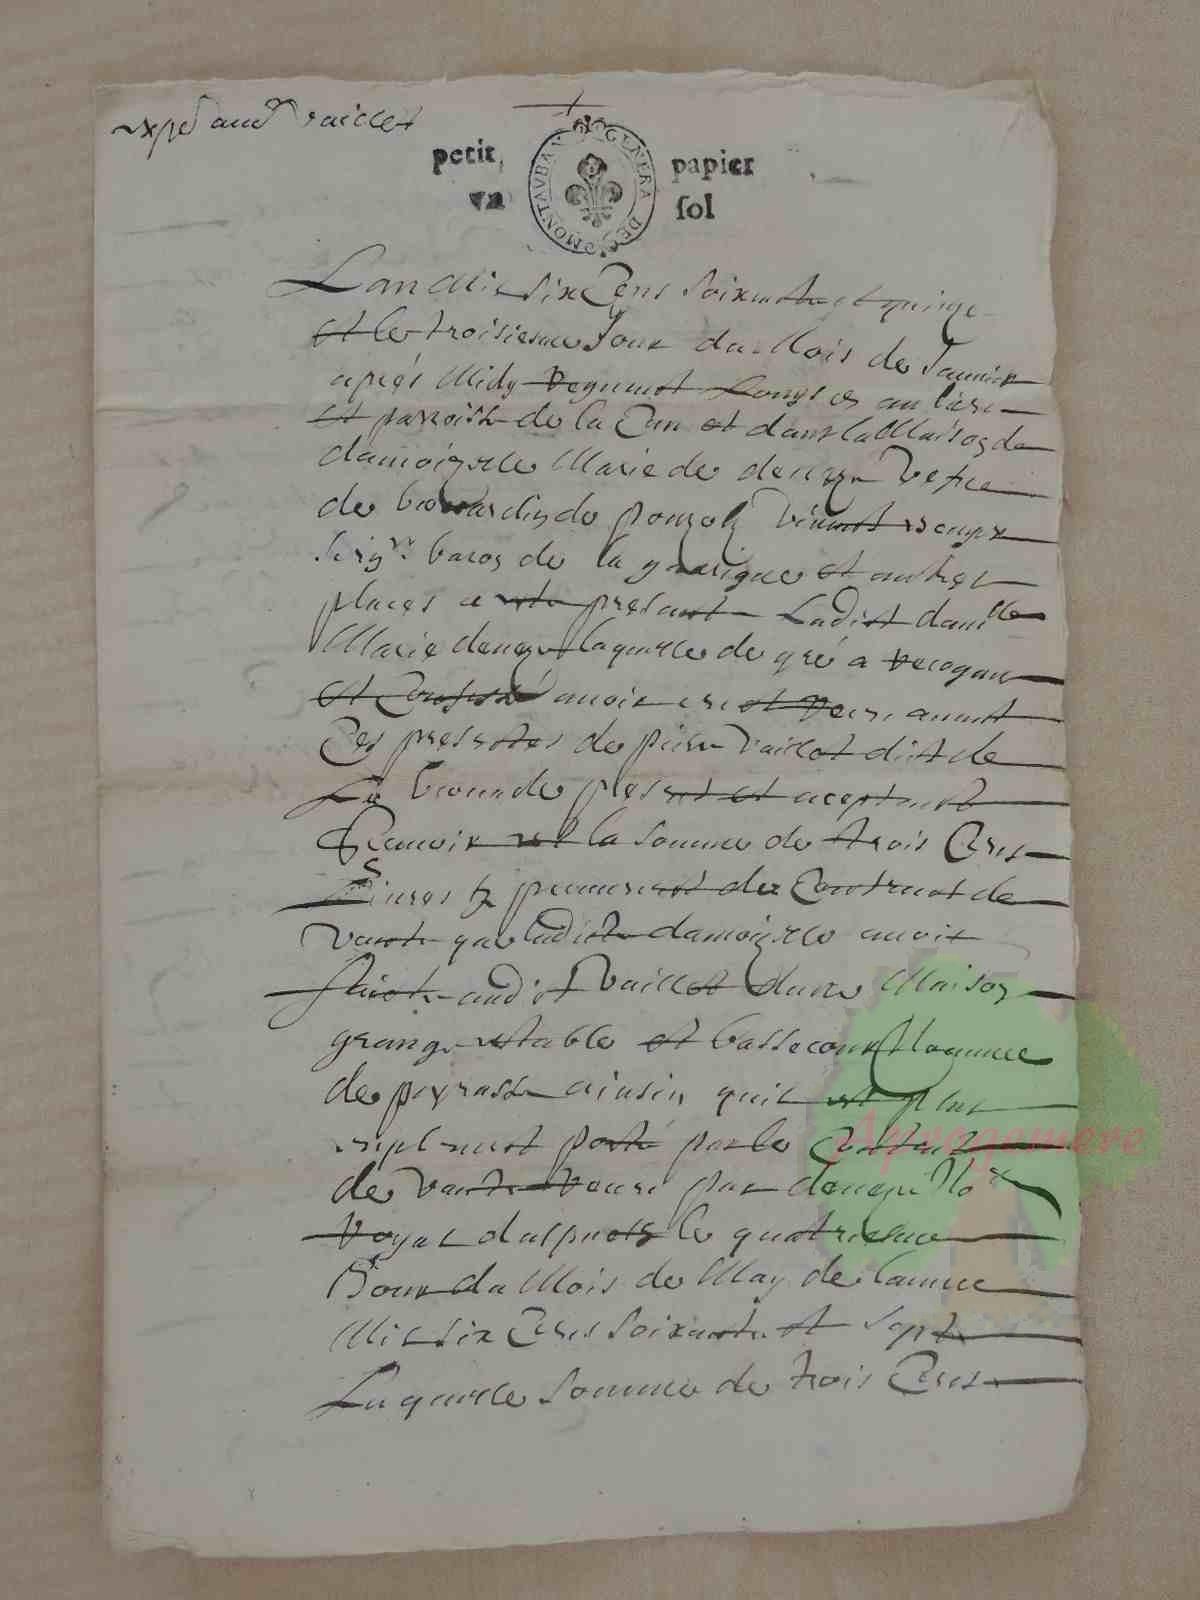 expé aud vaillet
petit papier
GENERA DE MONTAUBAN
un sol
Lan Mil six Cens soixante et quinze
et le troisiesme Jour du Mois de Januier
apres Midy Regnant Louys es au lieu
et parroisse de la Can et dans la Maison de
damoizelle Marie de vefue
de bernardin de ponzols viuant
seigr baron de la guarigue et autres
places a este presante Ladite damlle
Marie laquelle de gré a recogneu
et Confessé auoir eu et Receu auant
Ces presentes de pierre Vaillet dict de
La present et aceptant
sauoir est la somme de trois Cens
Liures tz du Contract de
vante que ladicte damoizelle auoit
faicte audit Vaillet dune Maison
grange estable et bassecour
de ainsin quil est plus
emplement porté par le Contract
de vante Receu par Nore
Royal le quatriesme
Jour du Mois de May de lannee
Mil six Cens soixante et sept
Laquelle somme de trois Cens
Aprogemere